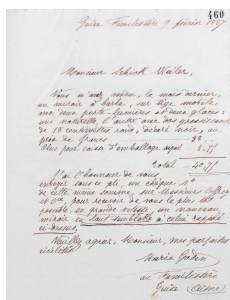 460
Guise Familistère 9 février 1887
Monsieur Schick Wüler,
Vous m'avez vendu, le mois dernier,
un miroir à barbe, sur tige mobile
avec deux porte-lumières et deux glaces:
une naturelle, l'autre avec des grossissants
de 18 centimètres rond, décoré noir, au
prix de francs 38. "
Plus pour caisse d'emballage ayant 2.75
Total 40.75
J'ai l'honneur de vous
envoyer sous ce pli, un chèque N°
de cette même somme, sur Messieurs
et Cie, pour recevoir de vous le plus tôt
possible, en grande vitesse, un nouveau
miroir en tout semblable à celui rappelé
ci-dessus.
Veuillez agréer, Monsieur, mes parfaites
civilités.
Marie Godin
au Familistère
Guise (Aisne)